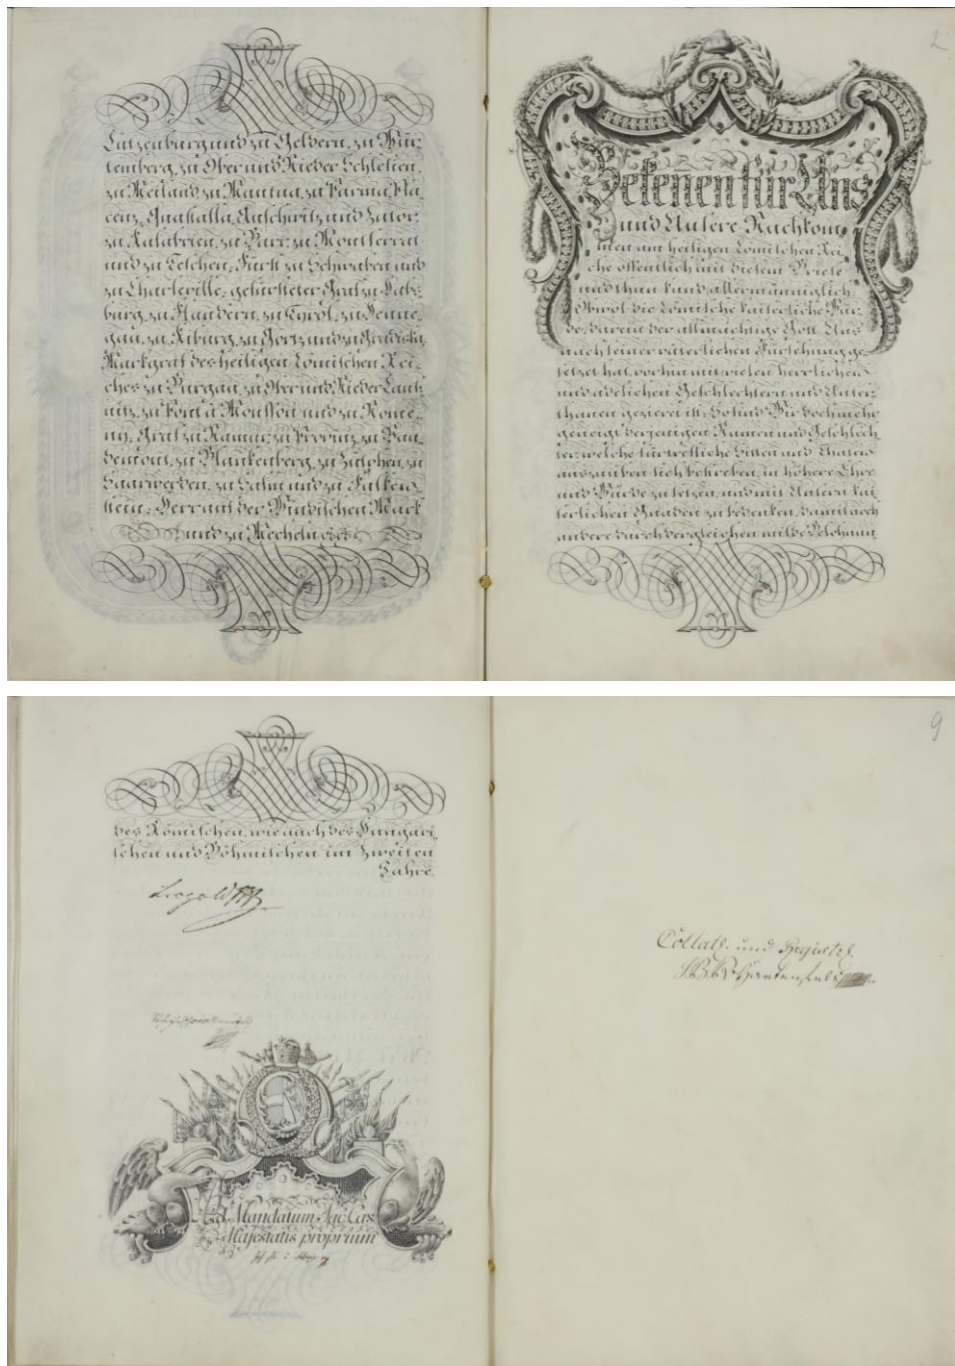 Lutzenburg und zu Geldern, zu Wür-
temberg, zu Ober und Nieder Schlesien,
zu Meiland, zu Mantua, zu Parma, Pla-
cenz, Guastalla, Auschwitz und Zator,
zu Kalabrien, zu Barr, zu Montferrat
und zu Teschen, Fürst zu Schwaben und
zu Charleville, gefürsteter Graf zu Habs-
burg, zu Flandern, zu Tyrol, zu Henne-
gau, zu Kiburg, zu Görz und zu Gradiska,
Markgraf des Heiligen Römischen Rei-
ches zu Burgau, zu Ober und Nieder Laus-
nitz, zu Pont à Mousson und zu Nome-
ny, Graf zu Namur, zu Provinz, zu Vau-
demont, zu Blankenberg, zu Zütphen, zu
Saarwerden, zu Salm und zu Falken-
stein, Herr auf der Windischen Mark
und zu Mecheln
2
Bekenen für Uns
und Unsere Nachkom-
men am heiligen Römischen Rei-
che öffentlich mit diesem Briefe
und thun kund allermänniglich
Obwol die Römische kaiserliche Wür-
de, darein der allmächtige Gott Uns
nach seiner väterlichen Fürsehung ge-
setzet hat, vorhin mit vielen herrlichen
und adelichen Geschlechtern und Unter-
thanen gezieret ist; So sind Wir doch mehr
geneigt derjenigen Namen und Geschlech-
ter, welche für treffliche Sitten und Thaten
auszuüben sich bestreben, in höhere Ehre
und Würde zu setzen, und mit Unsern kai-
serlichen Gnaden zu bedenken, damit noch
andere durch dergleichen milde Belohnun
9
des Römischen, wie auch des Hungari-
schen und Böhmischen im zweiten
Jahre.
Leopold
Ad Mandatum Sac. Caes.
Majestatis proprium
Collat. und Registr.